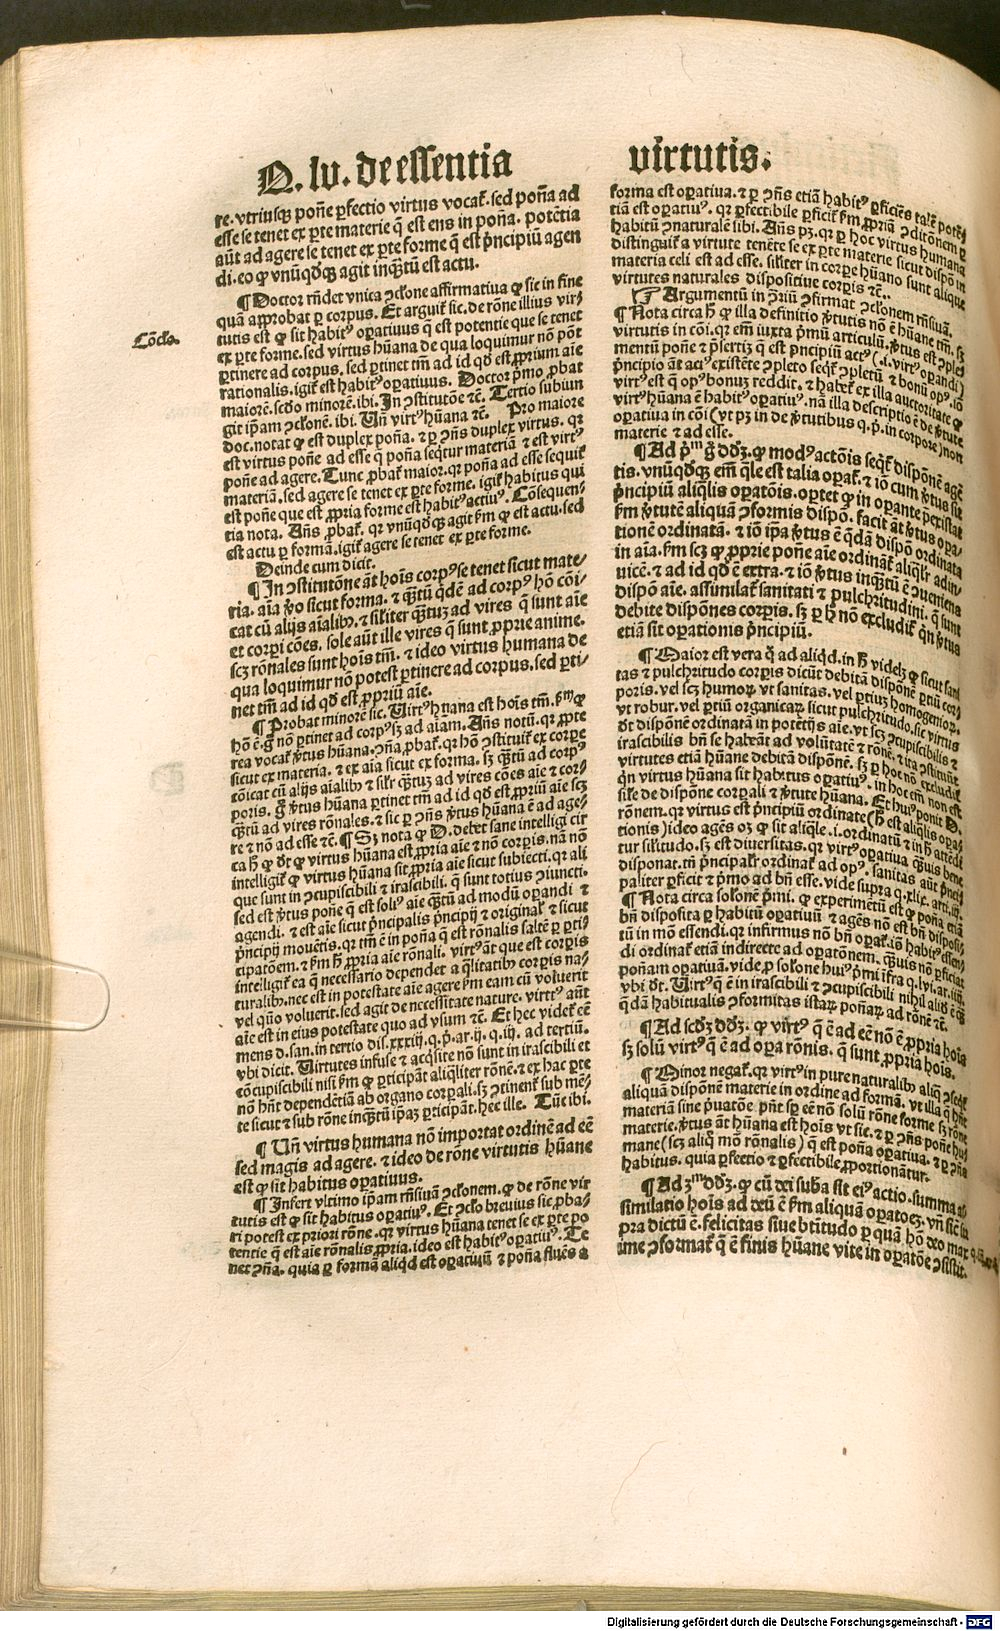 Q. lv. de essentia
virtutis.
re. vtriusqꝫ pone ꝑfectio virtus vocaꝉ. sed pona ad
esse se tenet ex ꝑte materie q̄ est ens in pona. potētia
aūt ad agere se tenet ex ꝑte forme q̄ est p̄ncipiū agen
di. eo ꝙ vnūqdqꝫ agit inqꝫtū est actu.
¶ Doctor rn̄det vnica ꝯclone affirmatiua ꝙ sic in fine
quā approbat ꝑ corpus. Et arguiꝉ sic. de rōne illius vir/
tutis est ꝙ sit habitꝰ oꝑatiuus q̄ est potentie que se tenet
Cōclo.
ex ꝑte forme. sed virtus hūana de qua loquimur nō pōt
ꝑtinere ad corpus. sed ꝑtinet tm̄ ad id qd est ꝓprium aīe
rationalis. igiꝉ est habitꝰ oꝑatiuus. Doctor p̄mo ꝓbat
maiorē. scdo minorē. ibi. In ꝯstitutōe ⁊c̄. Tertio subiun
git ip̄am ꝯclonē. ibi. Un̄ virtꝰ hūana ⁊c̄. Pro maiore
doc. notat ꝙ est duplex pona. ⁊ ꝑ ꝯn̄s duplex virtus. qꝛ
est virtus pone ad esse q̄ pona seqꝉur materiā ⁊ est virtꝰ
pone ad agere. Tunc ꝓbaꝉ maior. qꝛ pona ad esse sequiꝉ
materiā. sed agere se tenet ex ꝑte forme. igiꝉ habitus qui
est pone que est ꝓpria forme est habitꝰ actiuꝰ. Cōsequen/
tia nota. An̄s ꝓbaꝉ. qꝛ vnūqdqꝫ agit ẜm ꝙ est actu. sed
est actu ꝑ formā. igiꝉ agere se tenet ex ꝑte forme.
Deinde cum dicit.
¶ In ꝯstitutōne āt hoīs corpꝰ se tenet sicut mate/
ria. aīa v̄o sicut forma. ⁊ qꝫtū qdē ad corpꝰ hō cōi/
cat cū alijs aīalibꝫ. ⁊ siliter qꝫtuꝫ ad vires q̄ sunt aīe
et corpi cōes. sole aūt ille vires q̄ sunt ꝓprie anime.
scꝫ rōnales sunt hoīs tm̄. ⁊ ideo virtus humana de
qua loquimur nō potest ꝑtinere ad corpus. sed ꝑti/
net tm̄ ad id qd est ꝓpriū aīe.
¶ Probat minorē sic. Uirtꝰ hūana est hoīs tm̄. ẜm ꝙ
hō ē. gͦ nō ꝑtinet ad corpꝰ sꝫ ad aīam. An̄s notū. qꝛ ꝓpte
rea vocaꝉ v̄tus hūana. ꝯn̄a ꝓbaꝉ. qꝛ hō ꝯstituiꝉ ex corpe
sicut ex materia. ⁊ ex aīa sicut ex forma. sꝫ qꝫtū ad corpꝰ
cōicat cū alijs aīalibꝫ ⁊ silr qꝫtuꝫ ad vires cōes aīe ⁊ cor/
poris. gͦ v̄tus hūana ꝑtinet tm̄ ad id qd est ꝓpriū aīe scꝫ
qꝫtū ad vires rōnales. ⁊ sic ꝑ ꝯn̄s v̄tus hūana ē ad age/
re ⁊ nō ad esse ⁊c̄. ¶ Sꝫ nota ꝙ D. debet sane intelligi cir
ca ħ ꝙ dꝉ ꝙ virtus hūana est ꝓpria aīe ⁊ nō corpis. nā nō
intelligiꝉ ꝙ virtus hūana sit ꝓpria aīe sicut subiecti. qꝛ ali
que sunt in ꝯcupiscibili ⁊ irascibili. q̄ sunt totius ꝯiuncti.
sed est v̄tus pone q̄ est soliꝰ aīe qꝫtū ad modū oꝑandi ⁊
agendi. ⁊ est aīe sicut p̄ncipalis p̄ncipij ⁊ originaꝉ ⁊ sicut
p̄ncipij mouētis. qꝛ tm̄ ē in pona q̄ est rōnalis saltē ꝑ ꝑti/
cipatōem. ⁊ ẜm ħ ꝓpria aīe rōnali. virtꝰ āt que est corpis
intelligiꝉ ea q̄ necessario dependet a q̄litatibꝫ corpis na/
turalibꝫ. nec est in potestate aīe agere ẜm eam cū voluerit
vel quō voluerit. sed agit de necessitate nature. virtꝰ aūt
aīe est in eius potestate quo ad vsum ⁊c̄. Et hec videꝉ eē
mens d. san. in tertio dis. xxxiij. q. p̄. ar. ij. q. iij. ad tertiū.
vbi dicit. Uirtutes infuse ⁊ acqsite nō sunt in irascibili et
cōcupiscibili nisi ẜm ꝙ ꝑticipāt aliqliter rōnē. ⁊ ex hac ꝑte
nō hn̄t dependētiā ab organo corpali. sꝫ ꝯtinenꝉ sub mē/
te sicut ⁊ sub rōne inqꝫtū ip̄aꝫ ꝑticipāt. hec ille. Tūc ibi.
¶ Un̄ virtus humana nō importat ordinē ad eē
sed magis ad agere. ⁊ ideo de rōne virtutis hūane
est ꝙ sit habitus oꝑatiuus.
¶ Infert vltimo ip̄am rn̄siuā ꝯclonem. ꝙ de rōne vir
tutis est ꝙ sit habitus oꝑatiuꝰ. Et ꝯclo breuius sic ꝓba/
ri potest ex priori rōne. qꝛ virtus hūana tenet se ex ꝑte po
tentie q̄ est aīe rōnalis ꝓpria. ideo est habitꝰ oꝑatiuꝰ. Te
net ꝯn̄a. quia ꝑ formā aliqd est oꝑatiuū ⁊ pona siues a
forma est oꝑatiua. ⁊ ꝑ ꝯn̄s etiā habitꝰ ꝑficiēs taꝉ potē/
tiā est oꝑatiuꝰ. qꝛ ꝑfectibile ꝑficiꝉ ẜm ꝓpriā ꝯditōnem ꝑ
habitū ꝯnaturale sibi. An̄s pꝫ. qꝛ ꝑ hoc virtus humana
distinguiꝉ a virtute tenēte se ex ꝑte materie sicut dispō in
materia celi est ad esse. siliter in corpe hūano sunt alique
virtutes naturales dispositiue corpis ⁊c̄.
☞ Argumentū in ꝯriū ꝯfirmat ꝯclonem rn̄siuā.
¶ Nota circa ħ ꝙ illa definitio v̄tutis nō ē hūane tm̄. sꝫ
virtutis in cōi. qꝛ em̄ iuxta p̄mū articulū. v̄tus est ꝯple/
mentū pone ⁊ p̄sertiꝫ q̄ est p̄ncipiū actꝰ (.i. virtꝰ oꝑandi)
p̄ncipio āt actꝰ existēte ꝯpleto seqꝉ ꝯpletū ⁊ bonū opꝰ. iō
virtꝰ est q̄ opꝰ bonuꝫ reddit. ⁊ habeꝉ ex illa auctoritate ꝙ
virtꝰ hūana ē habitꝰ oꝑatiuꝰ. nā illa descriptio ē de v̄tute
oꝑatiua in cōi (vt pꝫ in de v̄tutibus q. p̄. in corpore) non
materie ⁊ ad esse.
¶ Ad p̄m gͦ dd̄ꝫ. ꝙ modꝰ actōis seqꝉ dispōnē agē
tis. vnūqdqꝫ em̄ q̄le est talia oꝑaꝉ. ⁊ iō cum v̄tus sit
p̄ncipiū aliqlis oꝑatōis. oꝑtet ꝙ in oꝑante p̄existat
ẜm v̄tutē aliquā ꝯformis dispō. facit āt v̄tus oꝑa/
tionē ordinatā. ⁊ iō ip̄a v̄tus ē q̄dā dispō ordinata
in aīa. ẜm scꝫ ꝙ ꝓprie pone aīe ordinanꝉ aliqlr adin/
uicē. ⁊ ad id qd ē extra. ⁊ iō v̄tus inqꝫtū ē ꝯueniens
dispō aīe. assimilaꝉ sanitati ⁊ pulchritudini. q̄ sunt
debite dispōnes corpis. sꝫ ꝑ ħ nō excludiꝉ qn̄ v̄tus
etiā sit oꝑationis p̄ncipiū.
¶ Maior est vera q̄ ad aliqd. in ħ videlꝫ ꝙ sicut sani
tas ⁊ pulchritudo corpis dicūt debitā dispōnē ꝑtiū cor/
poris. vel scꝫ humoꝝ vt sanitas. vel ꝑtiuꝫ homogenioꝝ.
vt robur. vel ꝑtiū organicaꝝ sicut pulchritudo. sic virtus
dꝉ dispōnē ordinatā in potētijs aīe. vt scꝫ ꝯcupiscibilis ⁊
irascibilis bn̄ se habeāt ad volūtatē ⁊ rōnē. ⁊ ita ꝯstituūt
virtutes etiā hūane debitā dispōnē. sꝫ ꝑ hoc nō excludiꝉ
qn̄ virtus hūana sit habitus oꝑatiuꝰ. in hoc em̄ non est
sile de dispōne corpali ⁊ v̄tute hūana. Et huiꝰ ponit D.
rōnem. qꝛ virtus est p̄ncipiū ordinate (ħ est aliqlis oꝑa/
tionis) ideo agēs oꝫ ꝙ sit aliqle .i. ordinatū ⁊ in ħ attēdi
tur silitudo. sꝫ est diuersitas. qꝛ virtꝰ oꝑatiua qꝫuis bene
disponat. tm̄ p̄ncipalr ordinaꝉ ad opꝰ. sanitas aūt p̄nci/
paliter ꝑficit ⁊ p̄mo ad bn̄ esse. vide supra q. xlix. arti. iij.
¶ Nota circa solonē p̄mi. ꝙ experimētū est ꝙ pona etiā
bn̄ disposita ꝑ habitū oꝑatiuū ⁊ agēs nō est bn̄ disposi/
tū in mō essendi. qꝛ infirmus nō bn̄ oꝑaꝉ. iō habitꝰ essen/
di ordinaꝉ etiā indirecte ad oꝑatōnem. qꝫuis nō ꝑficiat
ponam oꝑatiuā. vide ꝓ solone huiꝰ p̄mi īfra q. lvi. ar. iiij.
vbi dꝉ. Uirtꝰ q̄ ē in irascibili ⁊ ꝯcupiscibili nihil aliud ē qꝫ
q̄dā habitualis ꝯformitas istaꝝ ponaꝝ ad rōnē ⁊c̄.
¶ Ad scdꝫ dd̄ꝫ. ꝙ virtꝰ q̄ ē ad eē nō ē ꝓpria hoīs
sꝫ solū virtꝰ q̄ ē ad opa rōnis. q̄ sunt ꝓpria hoīs.
¶ Minor negaꝉ. qꝛ virtꝰ in pure naturalibꝫ aliq̄ ꝯseqꝉ
aliquā dispōnē materie in ordine ad formā. vt illa q̄ hn̄t
materiā sine p̄uatōe pn̄t sꝑ eē nō solū rōne forme sꝫ rōne
materie. v̄tus āt hūana est hoīs vt sic. ⁊ ꝑ ꝯn̄s pone hu/
mane (scꝫ aliq̄ mō rōnalis) q̄ est pona oꝑatiua. ⁊ ꝑ ꝯn̄s
habitus. quia ꝑfectio ⁊ ꝑfectibile ꝓportionātur.
¶ Ad ꝫm dd̄ꝫ. ꝙ cū dei suba sit eiꝰ actio. summa as
similatio hoīs ad deū ē ẜm aliquā oꝑatōeꝫ. vn̄ sic̄ su
pra dictū ē. felicitas siue btītudo ꝑ quā hō deo max
ime ꝯformaꝉ q̄ ē finis hūane vite in oꝑatōe ꝯsistit.
Digitalisierung gefördert durch die Deutsche Forschungsgemeinschaft - DFG